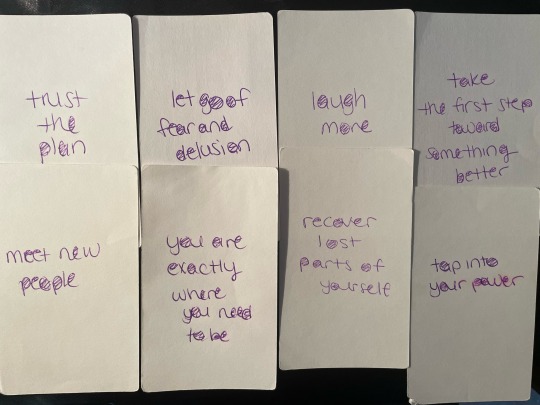 trust
the
plan
let go of
fear and
delusion
laugh
more
take
the first step
toward
something
better
meet new
people
you are
exactly
where
you need
to be
recover
lost
parts of
yourself
tap into
your power